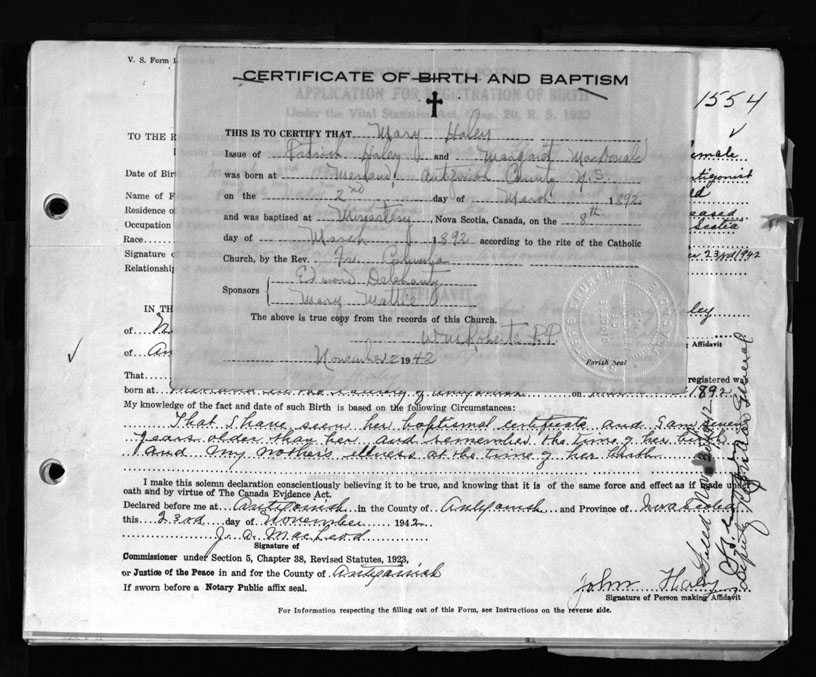 V. S. Form 1
CERTIFICATE OF BIRTH AND BAPTISM
APPLICATION FOR REGISTRATION OF BIRTH
Under the Vital Statistics Act, Cap. 20, R. S. 1923
1554
THIS IS TO CERTIFY THAT Mary Haley
Issue of Patrick Haley and Margaret MacDonald
was born at Merland, Antigonish County N.S.
on the 2nd day of March 1892
and was baptized at Monastery, Nova Scotia, Canada, on the 8th
day of March 1892 according to the rite of the Catholic
Church, by the Rev. Fr.
Sponsors Edward Delehanty
Mary Mattie
The above is true copy from the records of this Church.
Wm Roberts P.P.
November 2 1942
Parish Seal
TO THE R
Date of Birt
Name of F
Residence of
Occupation
Race
Signature o
Relationshi
female
ntigonish
eased
Scotia
23rd 1942
IN TH
of
of An
ley
Affidavit
That
registered was
born at on 1892
My knowledge of the fact and date of such Birth is based on the following Circumstances:
That I have seen her baptismal certificate and I am seven
years older than her and remember the time of her birth
and my mother's illness at the time of her birth
I make this solemn declaration conscientiously believing it to be true, and knowing that it is of the same force and effect as if made under
oath and by virtue of The Canada Evidence Act.
Declared before me at Antigonish in the County of Antigonish and Province of Nova Scotia
this 23rd day of November 1942
J. A. MacLeod
Signature of
Commissioner under Section 5, Chapter 38, Revised Statutes, 1923,
or Justice of the Peace in and for the County of Antigonish
If sworn before a Notary Public affix seal.
John Haley
Signature of Person making Affidavit
For Information respecting the filling out of this Form, see Instructions on the reverse side.
Filed Nov 30 1942
Deputy Registrar General